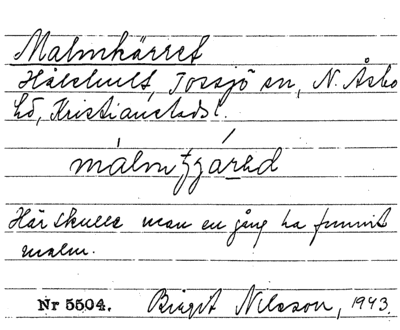 Malmkärret
Hålehult, Tossjö sn, N. Åsbo
hd, Kristianstads l.
målmtjär
Här skulle man en gång ha funnit
malm.
Nr 5504. Birgit Nilsson, 1943.